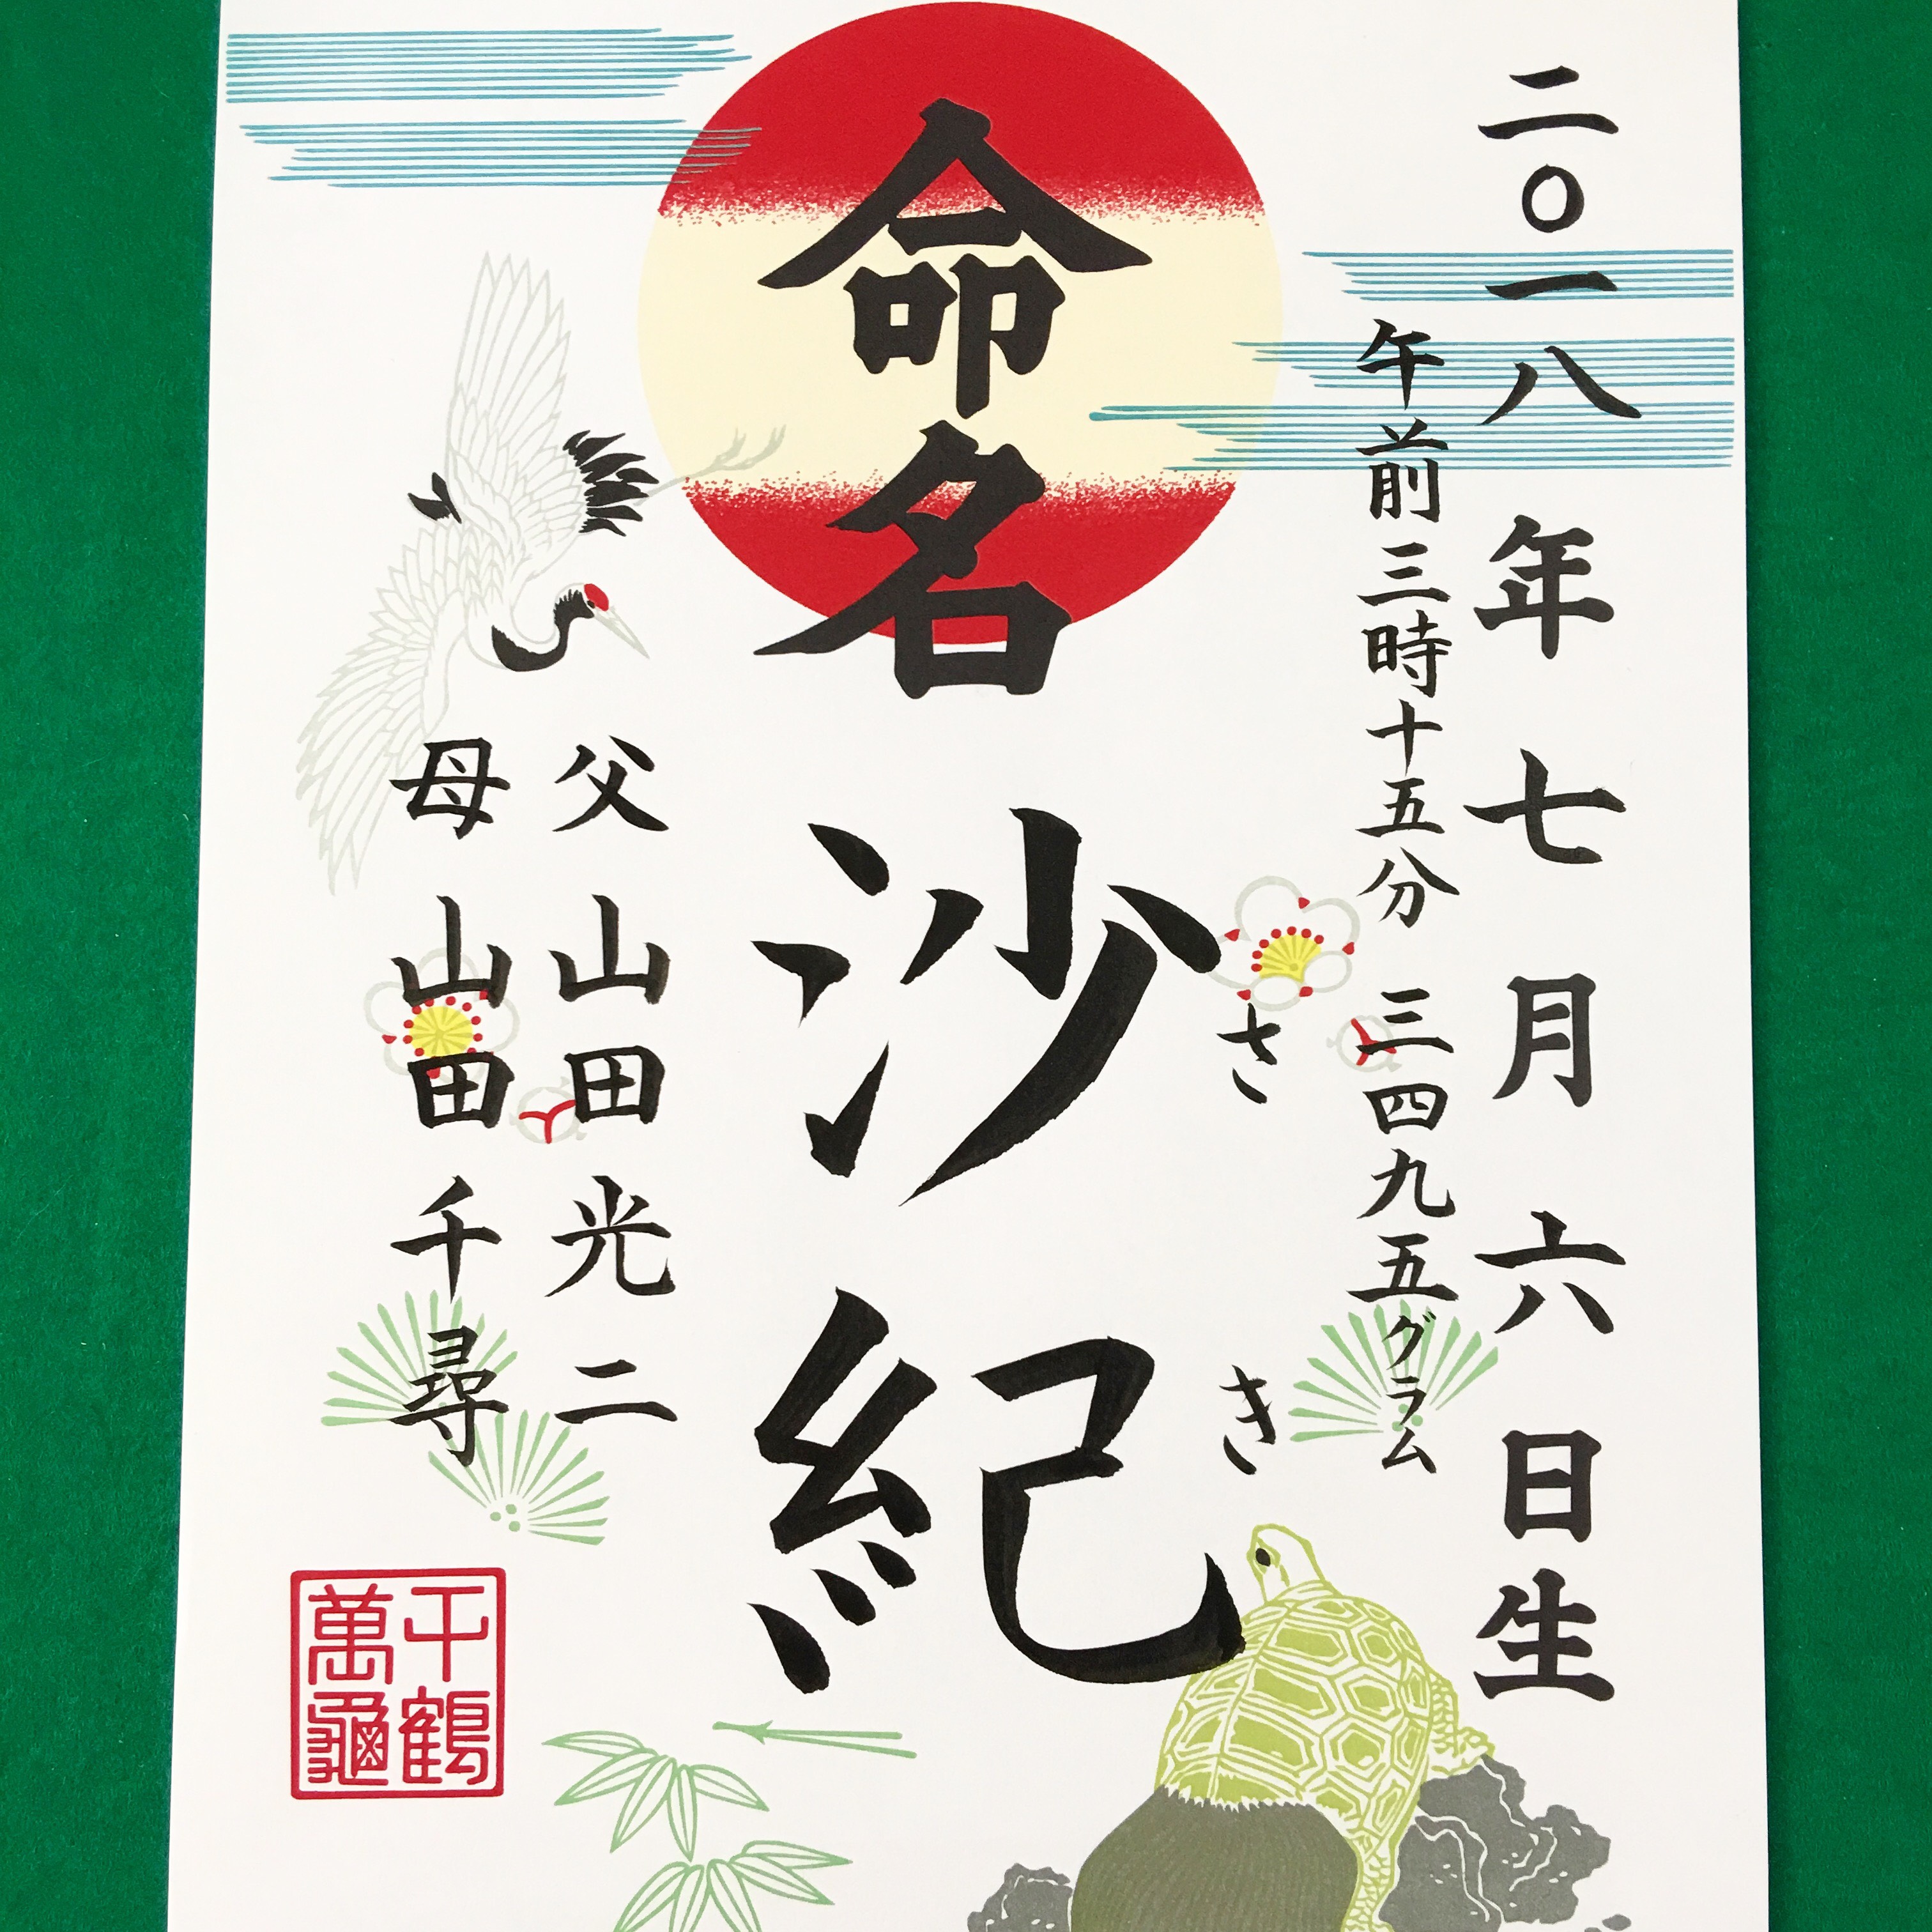 二〇一八年七月六日生
午前三時十五分 三四九五グラム
命名
沙紀
さき
父 山田光二
母 山田千尋
千鶴
萬龜